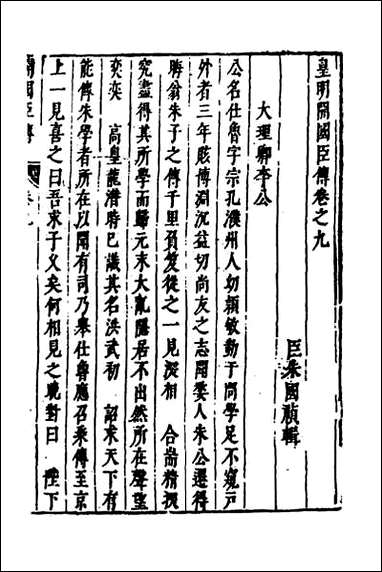 皇明開國臣傳卷之九
臣朱國禎輯
大理卿李公
公名仕魯字宗孔濮州人幼穎敏勤于問學足不窺戶
外者三年賅博淵沉益切尚友之志聞婺人朱公遷得
勝翁朱子之傳千里負笈從之一見深相 合崙精授
究盡得其所學而歸元末大亂隱居不出然所在聲望
奕奕 高皇龍潛時已識其名洪武初 詔求天下有
能傳朱學者所在以聞有司乃舉仕魯應召乘傳至京
上一見喜之曰吾求子久矣何相見之晚對曰 陛下
開國臣傳
卷九